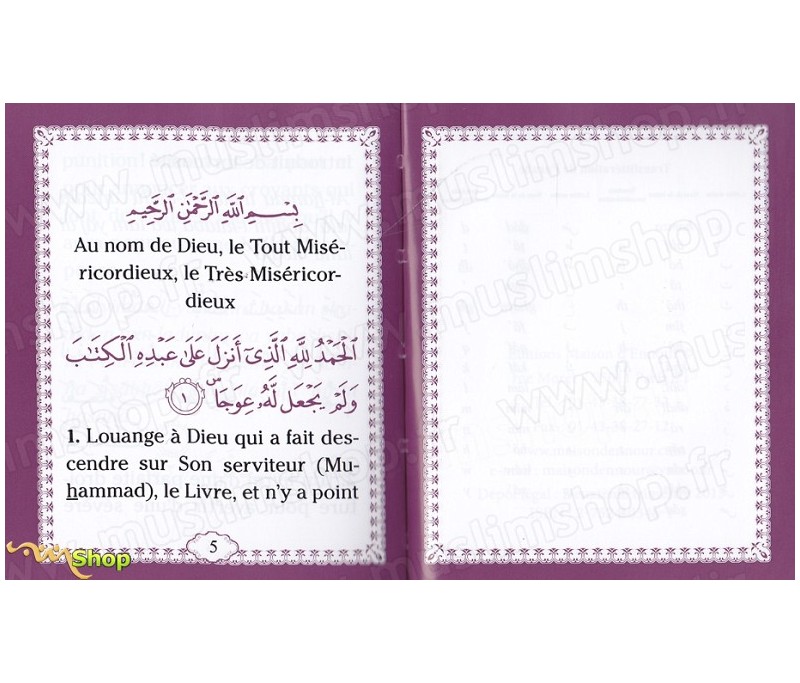 بِسْمِ اللَّهِ الرَّحْمَٰنِ الرَّحِيمِ
Au nom de Dieu, le Tout Misé-
ricordieux, le Très-Miséricor-
dieux
الْحَمْدُ لِلَّهِ الَّذِي أَنزَلَ عَلَىٰ عَبْدِهِ الْكِتَابَ
وَلَمْ يَجْعَل لَّهُ عِوَجًا ۜ ١
1. Louange à Dieu qui a fait des-
cendre sur Son serviteur (Mu-
hammad), le Livre, et n'y a point
5
Shop
www.muslimshop.fr